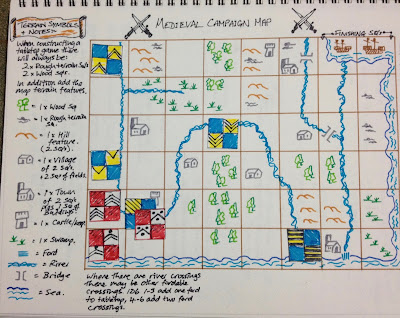 Terrain Symbols
+ Notes:-
Medieval Campaign Map
Finishing Set
When constructing a
tabletop game there
will always be:
2 x Rough terrain sqrs
2 x Wood sqrs.
In addition add the
map terrain features.
= 1 x Wood Sqr
= 1 x Rough terrain
Sqr.
= 1 x Hill
feature.
(2 sqrs).
= 1 x Village
of 2 sqrs
+ 2 sqrs of fields.
= 1 x Town
of 2 sqrs
plus 1 sq of
Buildings
= 1 x Castle/keep
= 1 x Swamp.
= Ford
= River
= Bridge
= Sea.
Where there are river crossings
there may be other fordable
crossings. 1D6 1-3 add one ford
to tabletop, 4-6 add two ford
crossings.